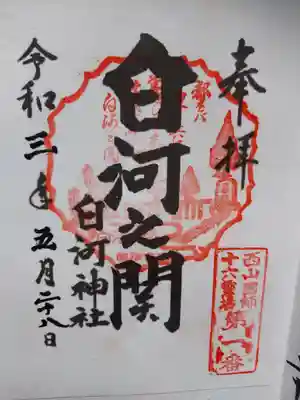 奉拝
白河之関
白河神社
令和三年五月二十八日
西山国師
十六霊場
第一番